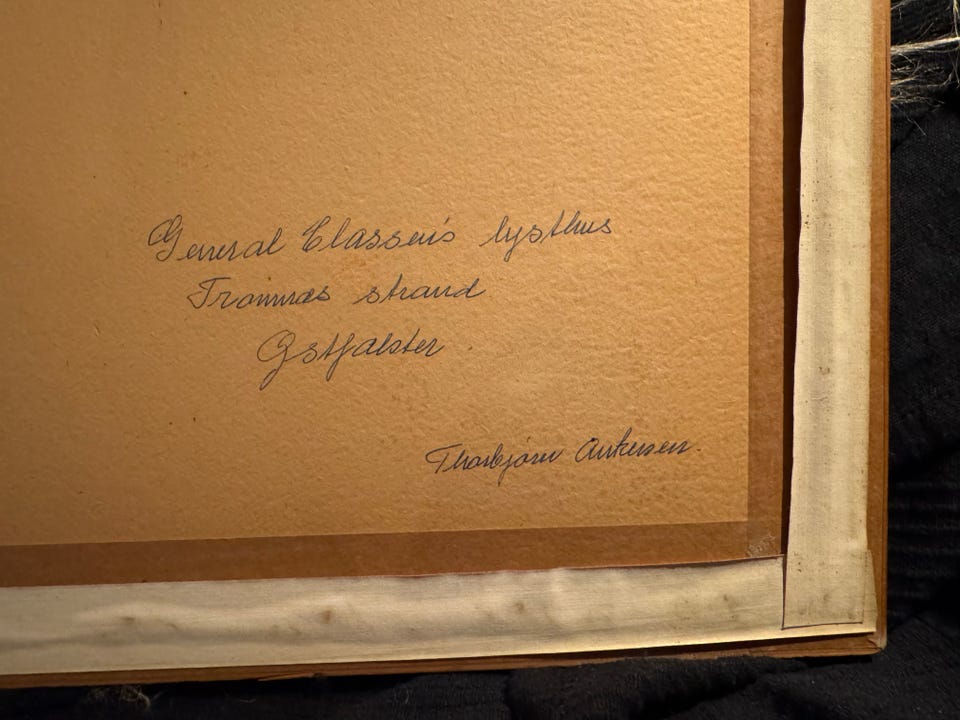 General Classen's lysthus
Tromnæs strand
Østfalster
Thorbjørn Ankersen.